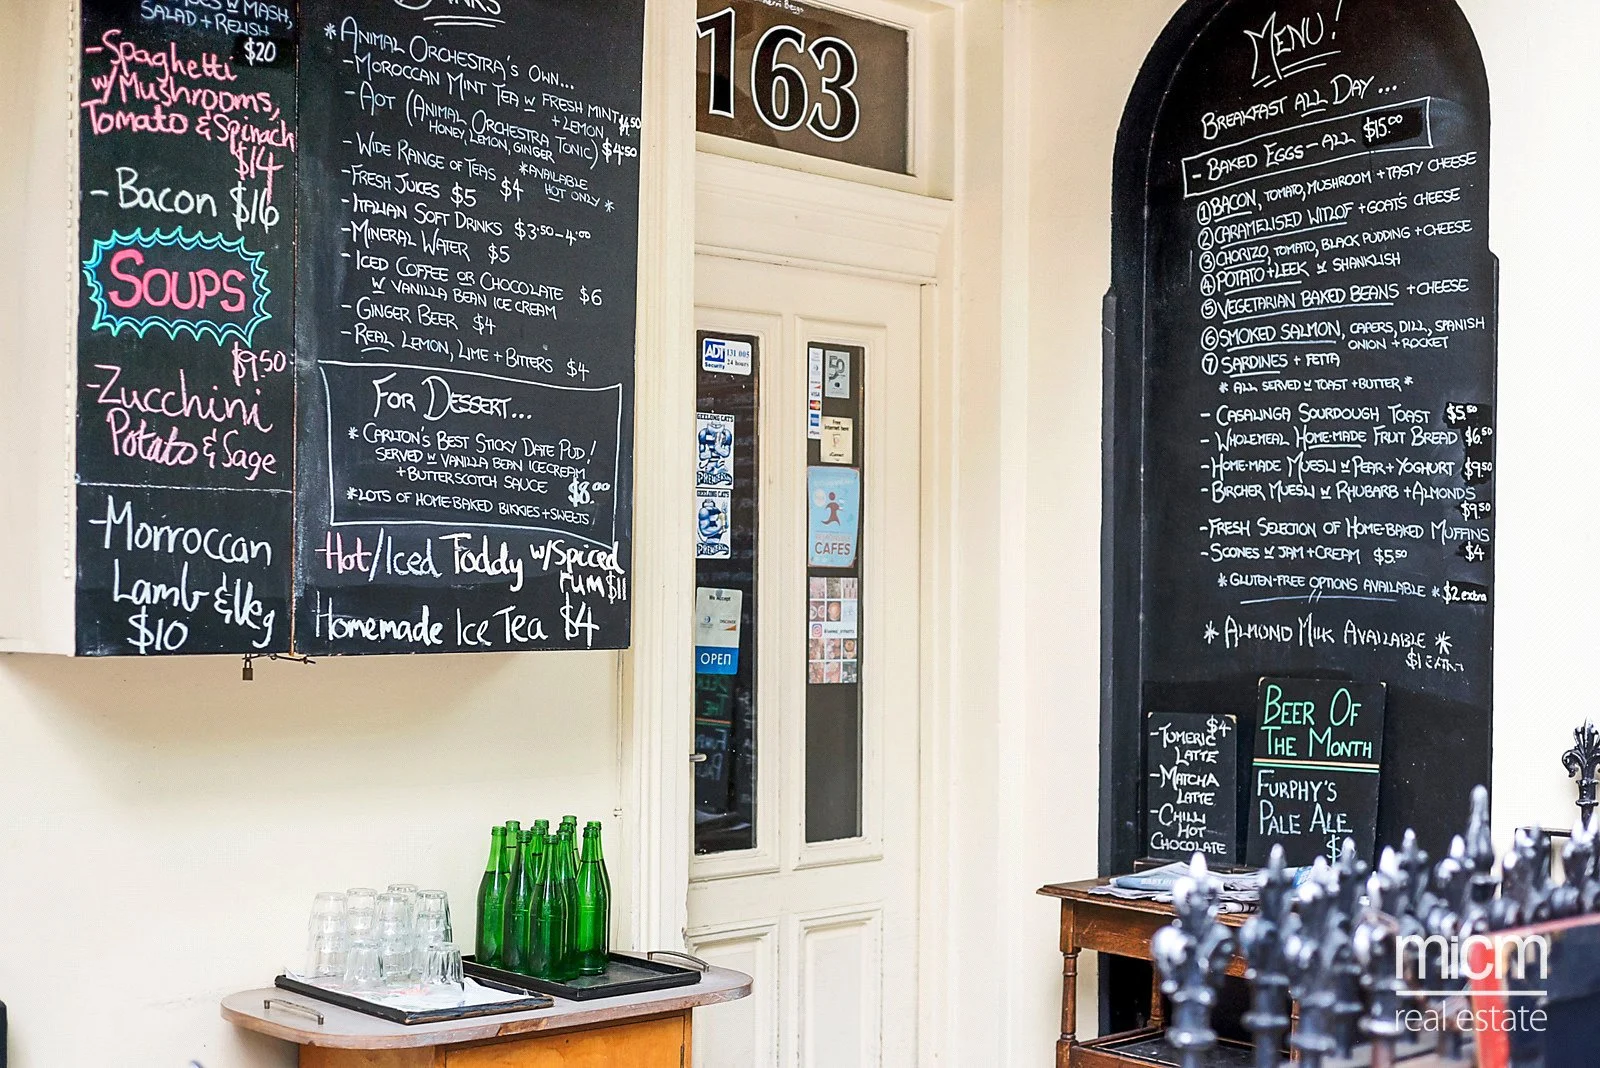 W MASH,
SALAD + RELISH
$20
-Spaghetti
w/ Mushrooms,
Tomato & Spinach
$14
-Bacon $16
SOUPS
$9.50
-Zucchini
Potato & Sage
-Morroccan
Lamb & Veg
$10
*ANIMAL ORCHESTRA'S OWN...
-MOROCCAN MINT TEA W FRESH MINT
+ LEMON $4.50
-AOT (ANIMAL ORCHESTRA TONIC) $4.50
HONEY, LEMON, GINGER
-WIDE RANGE OF TEAS $4
*AVAILABLE
HOT ONLY*
-FRESH JUICES $5
-ITALIAN SOFT DRINKS $3.50-4.00
-MINERAL WATER $5
-ICED COFFEE OR CHOCOLATE $6
W VANILLA BEAN ICE CREAM
-GINGER BEER $4
-REAL LEMON, LIME + BITTERS $4
FOR DESSERT...
*CARLTON'S BEST STICKY DATE PUD!
SERVED W VANILLA BEAN ICECREAM
+BUTTERSCOTCH SAUCE $8.00
*LOTS OF HOME-BAKED BIKKIES + SWEETS
Hot/Iced Toddy w/Spiced
rum $11
Homemade Ice Tea $4
163
ADT 131 005
Security 24 hours
GEELONG CATS
PREMIERS
GEELONG CATS
PREMIERS
We Accept
DISCOVER
OPEN
VISA
Free
internet here
CAFES
MENU!
BREAKFAST ALL DAY...
- BAKED EGGS - ALL $15.00
1 BACON, TOMATO, MUSHROOM + TASTY CHEESE
2 CARAMELISED WITLOF + GOAT'S CHEESE
3 CHORIZO, TOMATO, BLACK PUDDING + CHEESE
4 POTATO + LEEK W SHANKLISH
5 VEGETARIAN BAKED BEANS + CHEESE
6 SMOKED SALMON, CAPERS, DILL, SPANISH
ONION + ROCKET
7 SARDINES + FETTA
* ALL SERVED W TOAST + BUTTER *
- CASALINGA SOURDOUGH TOAST $5.50
- WHOLEMEAL HOME-MADE FRUIT BREAD $6.50
- HOME-MADE MUESLI W PEAR + YOGHURT $9.50
- BIRCHER MUESLI W RHUBARB + ALMONDS
$9.50
- FRESH SELECTION OF HOME-BAKED MUFFINS
$4
- SCONES W JAM + CREAM $5.50
* GLUTEN-FREE OPTIONS AVAILABLE * $2 extra
* ALMOND MILK AVAILABLE *
$1 EXTRA
$4
-TUMERIC
LATTE
-MATCHA
LATTE
-CHILLI
HOT
CHOCOLATE
BEER OF
THE MONTH
FURPHY'S
PALE ALE
$
micm
real estate